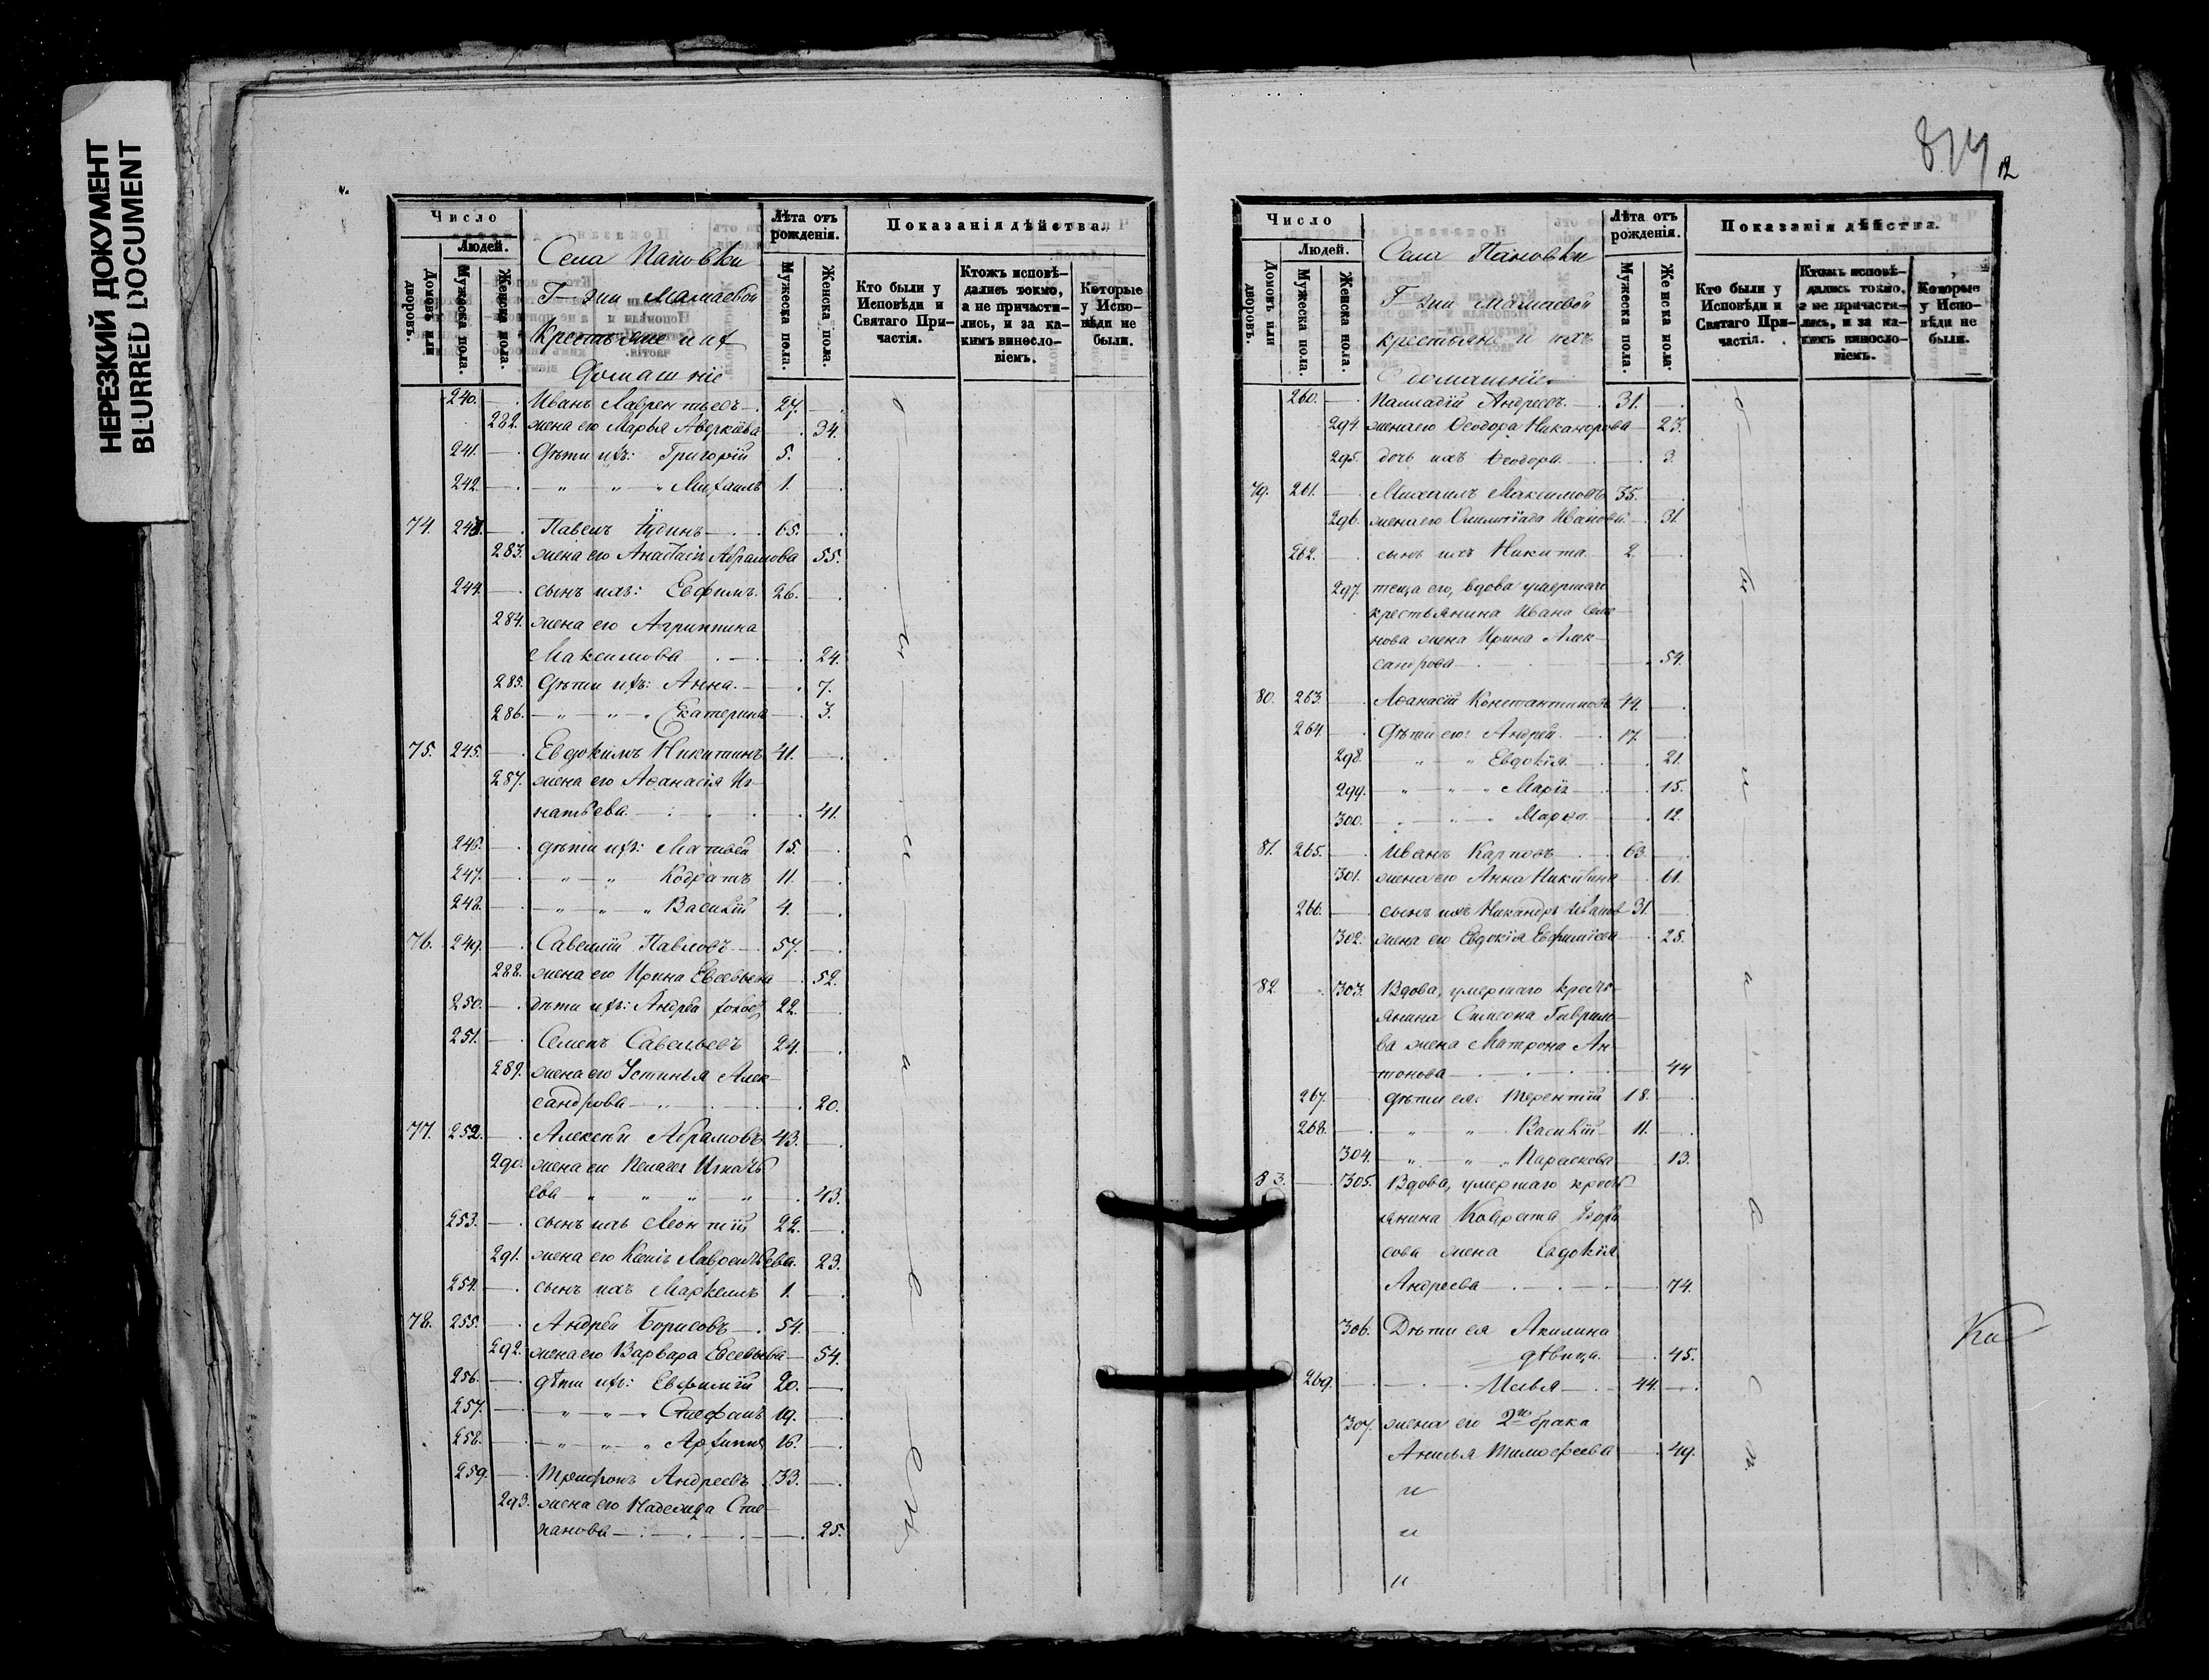 НЕРЕЗКИЙ ДОКУМЕНТ
BLURRED DOCUMENT
Число
Людей.
Домовъ или дворовъ.
Мужеска пола.
Женска пола.
Села Пановки
Г-жи Мамаевой
Крестьяне и их
Домашніе
Лѣта отъ рожденія.
Мужеска пола.
Женска пола.
Показанія дѣйства.
Кто были у Исповѣди и Святаго Причастія.
Ктожъ исповѣдались токмо, а не причастились, и за какимъ винословіемъ.
Которые у Исповѣди не были.
240. Иванъ Лаврентьевъ 27.
282. жена его Марья Аверкіева 34.
241. Дѣти ихъ: Григорій 5.
242. " " " Михаилъ 1.
74. 243. Павелъ Юдинъ 65.
283. жена его Анастасія Абрамова 55.
244. сынъ ихъ: Евфимъ 26.
284. жена его Агриппина
Максимова 24.
285. Дѣти ихъ: Анна 7.
286. " " " Екатерина 3.
75. 245. Евдокимъ Никитинъ 41.
287. жена его Аѳанасія Иг-
натьева 41.
246. дѣти ихъ: Матвей 15.
247. " " Кодратъ 11.
248. " " " Василій 4.
76. 249. Савелій Павловъ 57.
288. жена его Ирина Евсевьева 52.
250. дѣти ихъ: Андрей 22.
251. Семенъ Савельевъ 24.
289. жена его Устинья Алек-
сандрова 20.
77. 252. Алексѣй Абрамовъ 43.
290. жена его Пелагея Игнать
ева " " " " 43.
253. сынъ ихъ Леонтій 22.
291. жена его Ксенія 23.
254. сынъ ихъ Маркеллъ 1.
78. 255. Андрей Борисовъ 54.
292. жена его Варвара Евсевьева 54.
256. дѣти ихъ: Евфимій 20.
257. " " " Стефанъ 19.
258. " " " Архиппъ 16.
259. Трифонъ Андреевъ 33.
293. жена его Надежда Сте-
панова 25.
874
12
Число
Людей.
Домовъ или дворовъ.
Мужеска пола.
Женска пола.
Села Пановки
Г-жи Мамаевой
крестьяне и ихъ
домашніе
Лѣта отъ рожденія.
Мужеска пола.
Женска пола.
Показанія дѣйства.
Кто были у Исповѣди и Святаго Причастія.
Ктожъ исповѣдались токмо, а не причастились, и за какимъ винословіемъ.
Которые у Исповѣди не были.
260. Палладій Андреевъ 31.
294. жена его Ѳеодора Никанорова 23.
295. дочь ихъ Ѳеодора 3.
79. 261. Михаилъ Максимовъ 35.
296. жена его Олимпіада Иванова 31.
262. сынъ ихъ Никита 2.
297. теща его, вдова умершаго
крестьянина Ивана Семе-
нова жена Ирина Алек-
сандрова 54.
80. 263. Аѳанасій Константиновъ 49.
264. Дѣти его: Андрей 17.
298. " " Евдокія 21.
299. " " " Марія 15.
300. " " " Марѳа 12.
81. 265. Иванъ Карповъ 63.
301. жена его Анна Никитина 61.
266. сынъ ихъ Никандръ Ивановъ 31.
302. жена его Евдокія Евфиміева 25.
82. 303. Вдова, умершаго кресть-
янина Симеона Гаврило-
ва жена Матрона Ан-
тонова 44
267. дѣти ея: Терентій 18.
268. " " Василій 11.
304. " " " Параскева 13.
83. 305. Вдова, умершаго кресть
янина Кодрата Бори
сова жена Евдокія
Андреева 74.
306. Дѣти ея Акилина
дѣвица 45.
269. Илья 44.
307. жена его 2го брака
Анисья Тимофеева 49.
и
и
и